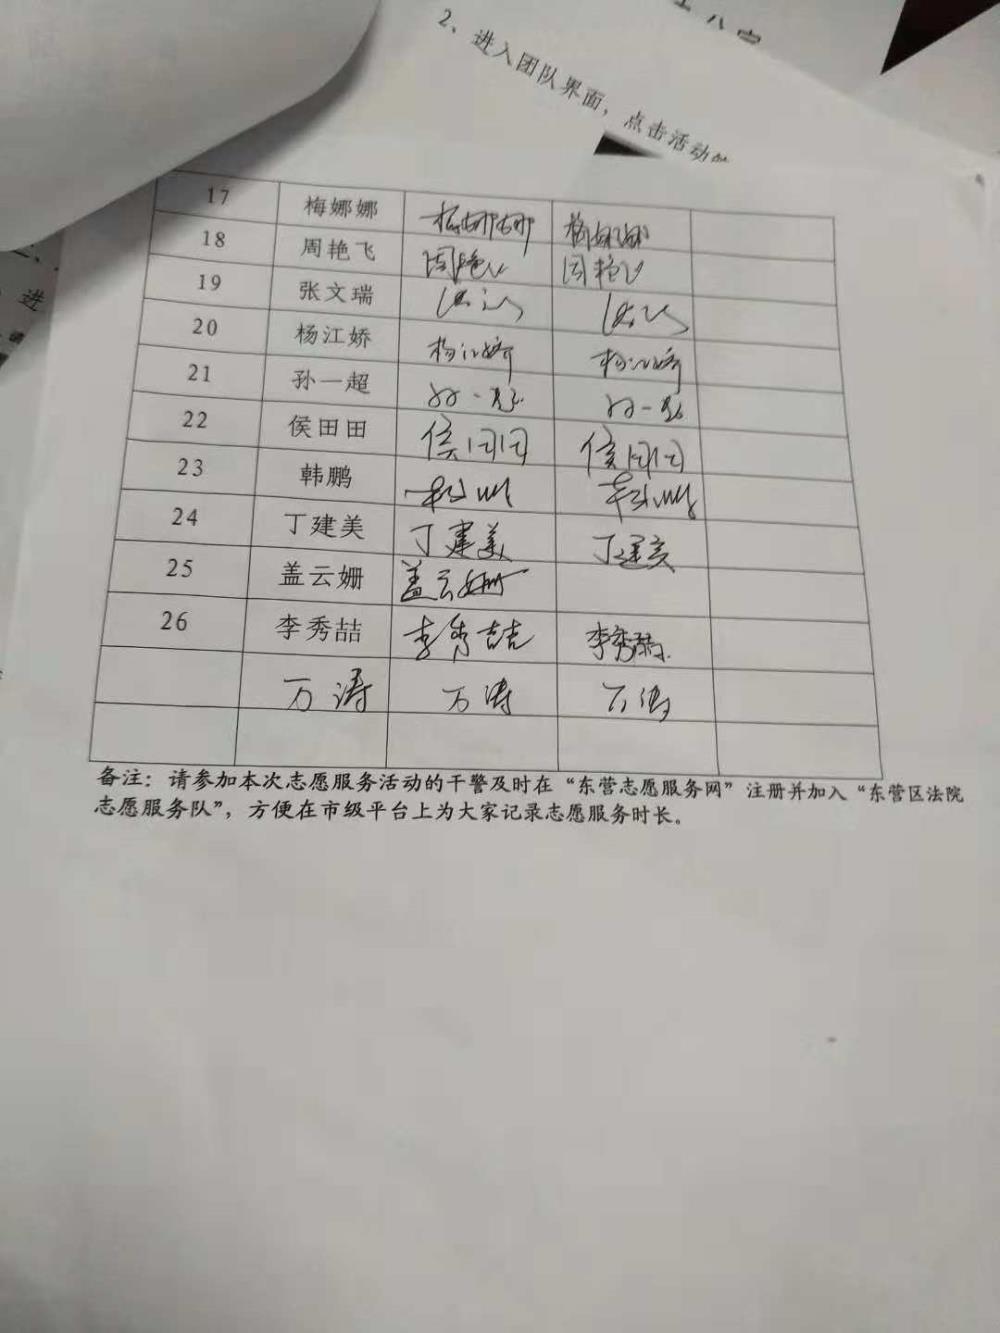 2、进入团队界面，点击活动
进
17 梅娜娜 梅娜娜 梅娜娜
18 周艳飞 周艳飞 周艳飞
19 张文瑞
20 杨江娇 杨江娇 杨江娇
21 孙一超 孙一超 孙一超
22 侯田田 侯田田 侯田田
23 韩鹏 韩鹏 韩鹏
24 丁建美 丁建美 丁建美
25 盖云姗 盖云姗
26 李秀喆 李秀喆 李秀喆
万涛 万涛 万涛
备注：请参加本次志愿服务活动的干警及时在“东营志愿服务网”注册并加入“东营区法院
志愿服务队”，方便在市级平台上为大家记录志愿服务时长。